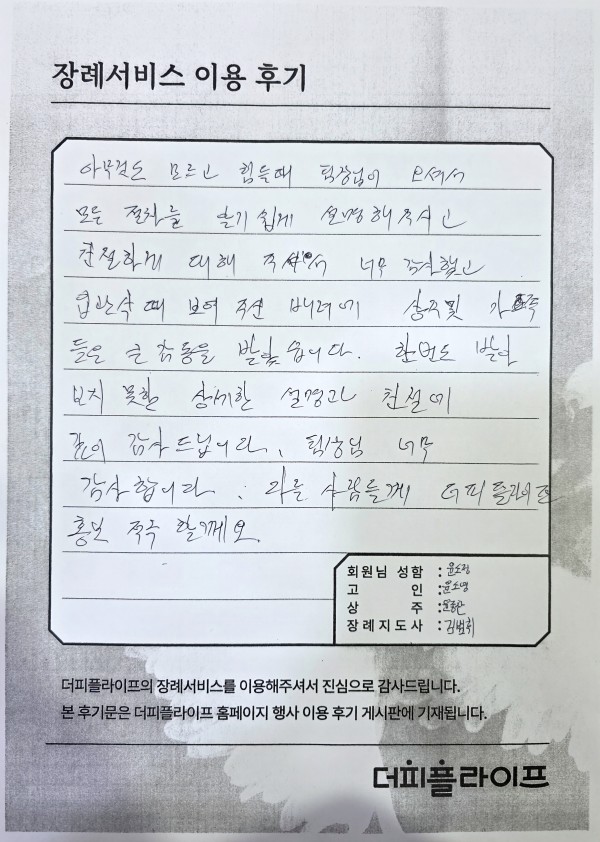 장례서비스 이용 후기
아무것도 모르고 힘들때 팀장님이 오셔서
모든 절차를 알기 쉽게 설명해주시고
친절하게 대해 주셔서 너무 감사했고
입관식 때 보여 주신 배려에 상주및 가족
들은 큰 감동을 받았습니다. 한번도 받아
보지 못한 상세한 설명과 친절에
깊이 감사드립니다. 팀장님 너무
감사합니다. 다른 사람들께 더피플라이프
홍보 적극 할께요.
회원님 성함 :
고 인 : 윤소명
상 주 :
장례지도사 : 김범휘
더피플라이프의 장례서비스를 이용해주셔서 진심으로 감사드립니다.
본 후기문은 더피플라이프 홈페이지 행사 이용 후기 게시판에 기재됩니다.
더피플라이프